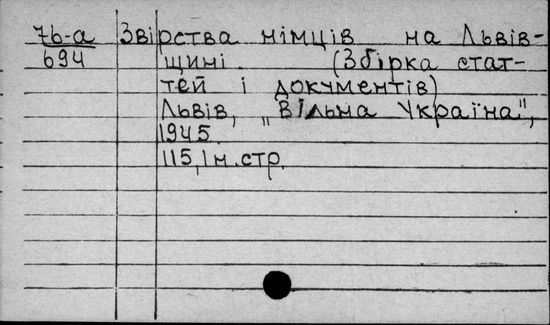 76-а Звірства німців на Львів-
694 щині. (Збірка стат-
тей і документів)
Львів, „Вільна Україна",
1945.
115, 1 н. стр.